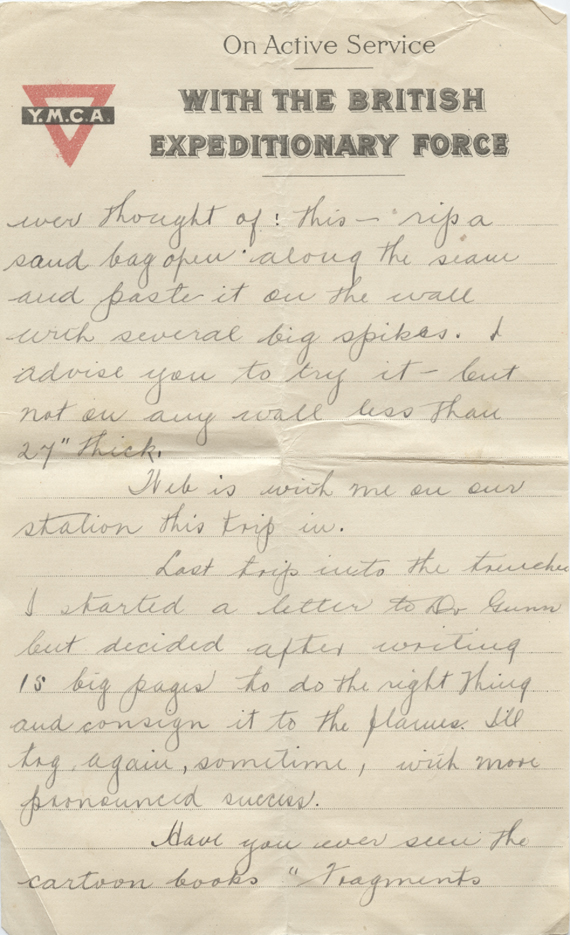 On Active Service
WITH THE BRITISH
EXPEDITIONARY FORCE
Y.M.C.A.
ever thought of: this – rip a
sand bag open along the seam
and paste it on the wall
with several big spikes. I
advise you to try it – but
not on any wall less than
27" thick.
Web is with me on our
station this trip in.
Last trip into the trenches
I started a letter to Dr Gunn
but decided after writing
15 big pages to do the right thing
and consign it to the flames. I'll
try again, sometime, with more
pronounced success.
Have you ever seen the
cartoon books "Fragments